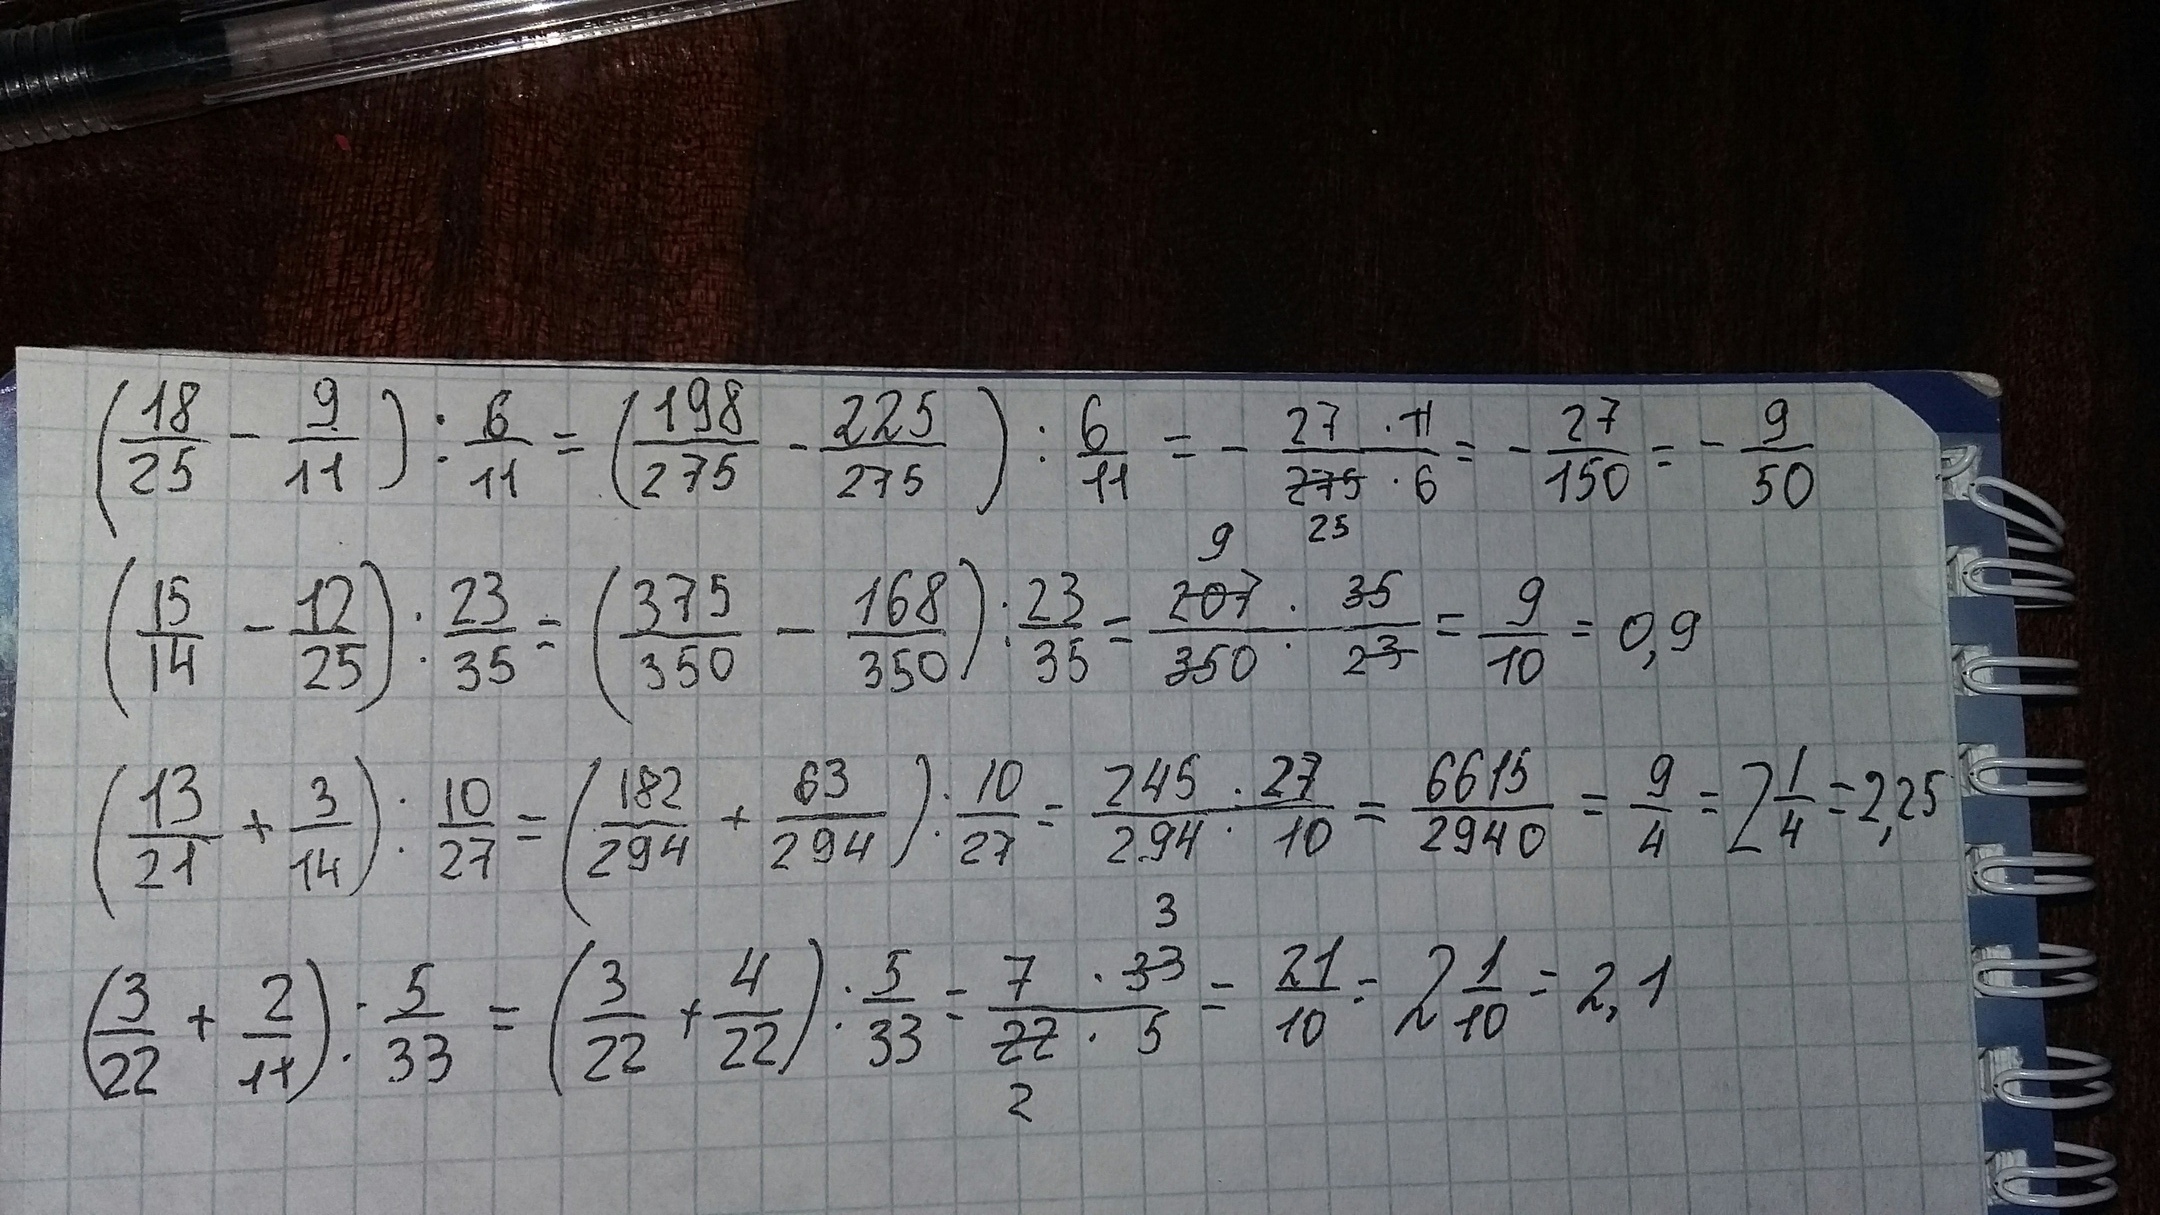 (18/25 - 9/11) : 6/11 = (198/275 - 225/275) : 6/11 = - 27 · 11 / 275 · 6 = - 27/150 = - 9/50
25
9
(15/14 - 12/25) : 23/35 = (375/350 - 168/350) : 23/35 = 207/350 · 35/23 = 9/10 = 0,9
(13/21 + 3/14) : 10/27 = (182/294 + 63/294) : 10/27 = 245 · 27 / 294 · 10 = 6615/2940 = 9/4 = 2 1/4 = 2,25
3
(3/22 + 2/11) : 5/33 = (3/22 + 4/22) : 5/33 = 7 · 33 / 22 · 5 = 21/10 = 2 1/10 = 2,1
2